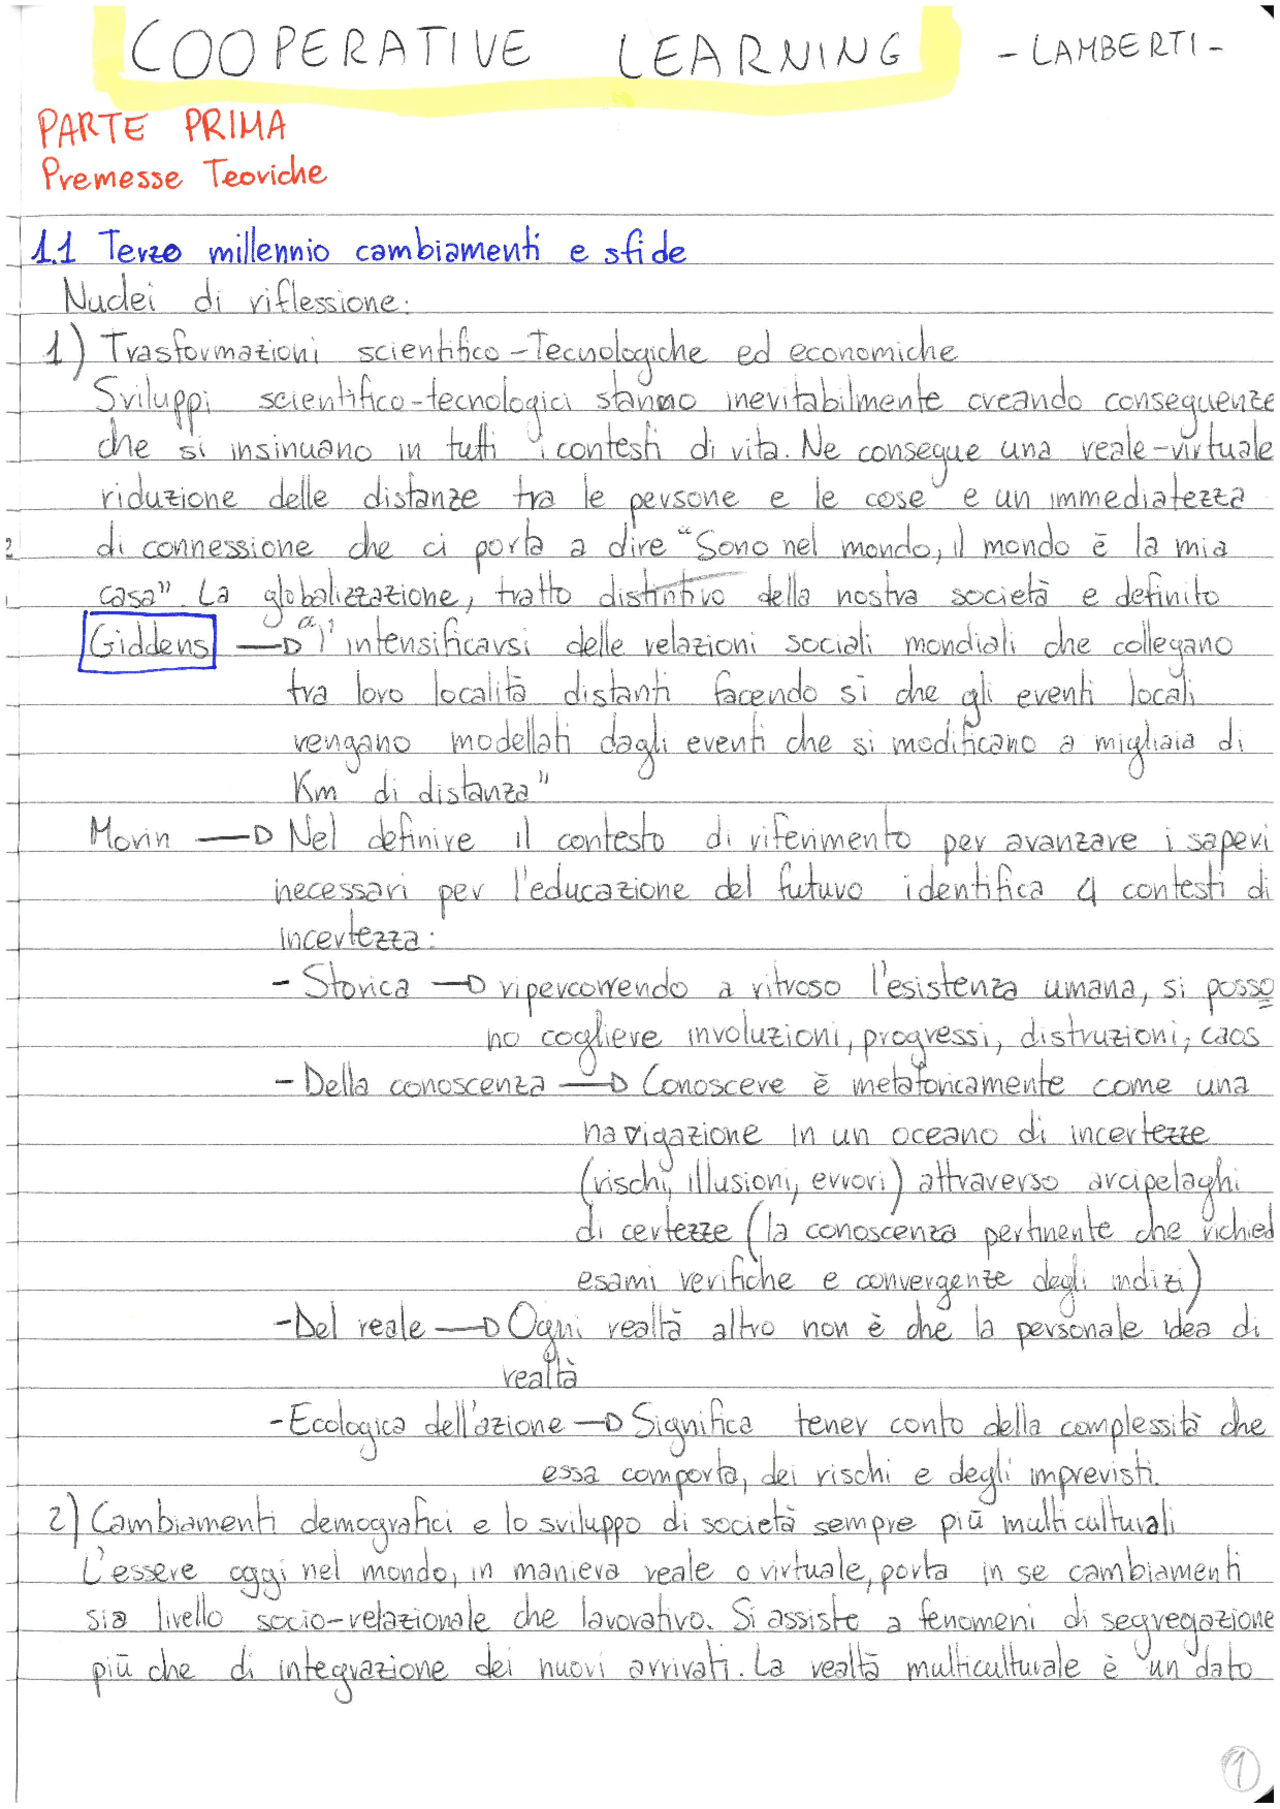 COOPERATIVE LEARNING - LAMBERTI -
PARTE PRIMA
Premesse Teoriche
1.1 Terzo millennio cambiamenti e sfide
Nuclei di riflessione:
1) Trasformazioni scientifico-Tecnologiche ed economiche
Sviluppi scientifico-tecnologici stanno inevitabilmente creando conseguenze
che si insinuano in tutti i contesti di vita. Ne consegue una reale-virtuale
riduzione delle distanze tra le persone e le cose e un immediatezza
di connessione che ci porta a dire "Sono nel mondo, il mondo è la mia
casa". La globalizzazione, tratto distintivo della nostra società e definito
Giddens → "l'intensificarsi delle relazioni sociali mondiali che collegano
tra loro località distanti facendo si che gli eventi locali
vengano modellati dagli eventi che si modificano a migliaia di
Km di distanza"
Morin → Nel definire il contesto di riferimento per avanzare i saperi
necessari per l'educazione del futuro identifica 4 contesti di
incertezza:
- Storica → ripercorrendo a ritroso l'esistenza umana, si posso
no cogliere involuzioni, progressi, distruzioni, caos
- Della conoscenza → Conoscere è metaforicamente come una
navigazione in un oceano di incertezze
(rischi, illusioni, errori) attraverso arcipelaghi
di certezze (la conoscenza pertinente che richied
esami verifiche e convergenze degli indizi)
- Del reale → Ogni realtà altro non è che la personale idea di
realtà
- Ecologica dell'azione → Significa tener conto della complessità che
essa comporta, dei rischi e degli imprevisti.
2) Cambiamenti demografici e lo sviluppo di società sempre più multiculturali
L'essere oggi nel mondo, in maniera reale o virtuale, porta in se cambiamenti
sia livello socio-relazionale che lavorativo. Si assiste a fenomeni di segregazione
più che di integrazione dei nuovi arrivati. La realtà multiculturale è un dato
1